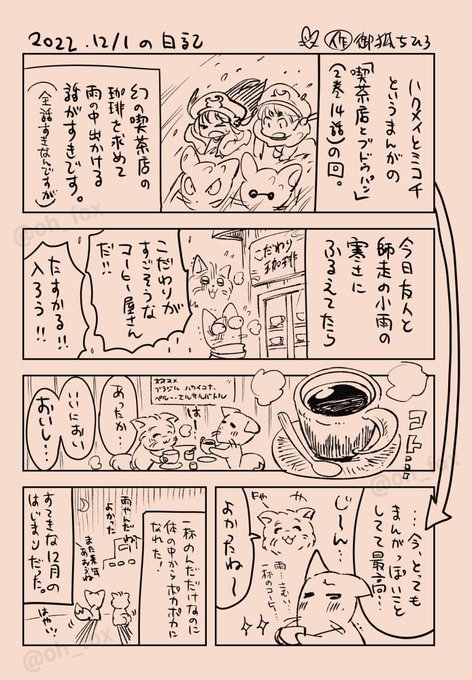 2022.12/1の日記
作 御狐ちひろ
ハクメイとミコチ
というまんがの
「喫茶店とブドウパン」
(2巻14話)の回。
幻の喫茶店の
珈琲を求めて
雨の中出かける
話がすきです。
(全話すきなんですが)
今日友人と
師走の小雨の
寒さに
ふるえてたら
こだわり
珈琲
こだわりが
すごそうな
コーヒー屋さん
だ!!
たすかる!!
入ろう!!
コト…
オススメ
ブラジル ハワイコナ
ペルー エルサルバドル
は
あったか…
いいにおい
おいし…
…今、とっても
まんがっぽいこと
してて最高…
じーん…
雨…さむ…
一杯のコーヒー…
よかったね〜
一杯のんだだけなのに
体の中からポカポカに
なれた!
雨やんだね
よかった
また来年
あおうね
すてきな12月の
はじまりだった。
はやい…
@oh_fox
@oh_fox
@oh_fox